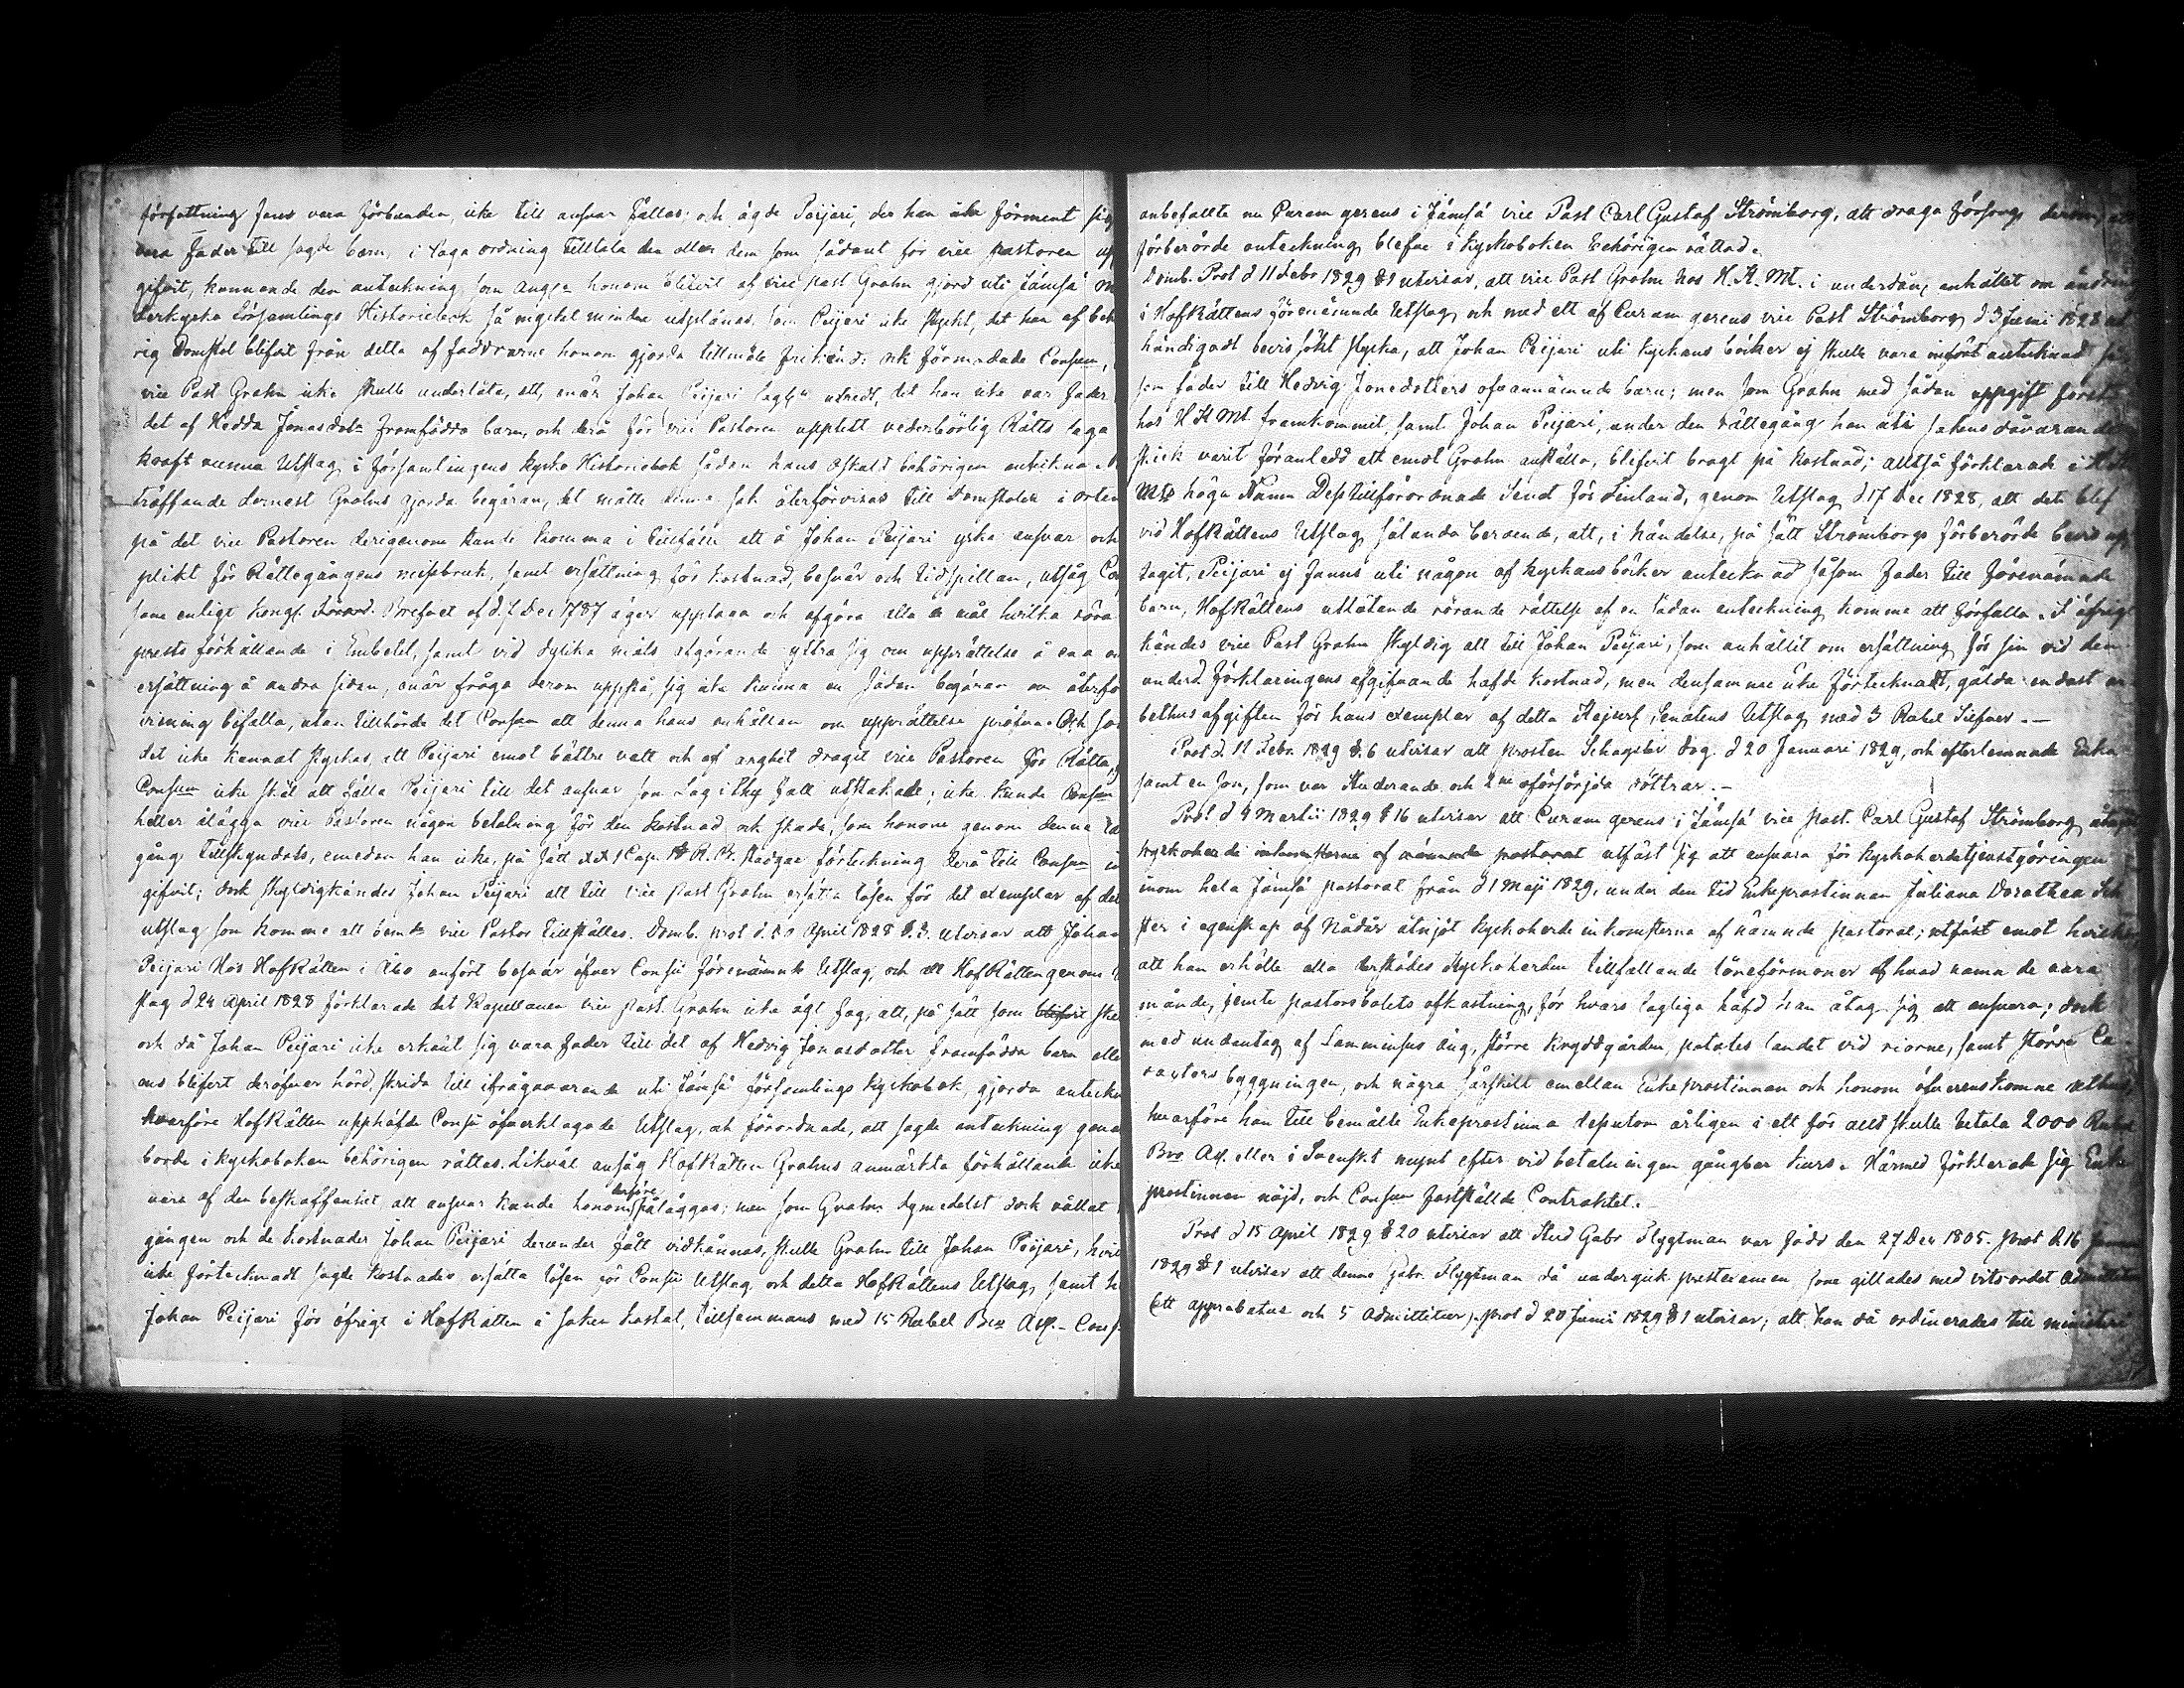 författning fans vara förbunden, icke till ansvar fällas; och ägde Peijari, der han icke förment sig
vara fader till sagde barn, i laga ordning tilltala den eller dem som sådant för vice Pastoren upp
gifvit, kunnande den anteckning, som angående honom blifvit af vice past Grahn gjord uti Jämsä
derkyrko Församlings Historiebok så mycket mindre utplånas, som Peijari icke styrkt, det han af behö
rig Domstol blifvit från detta af fadderne honom gjorda tillmäle frikänd. ock förmodade Consm,
vice Past Grahn icke skulle underlåta, att, enär Johan Peijari lagln utredt, det han icke var fader
det af Hedda Jonasdotr framfödda barn, och derå för vice Pastoren upptett vederbörlig Rätts laga
kraft vunna Utslag, i församlingens kyrko Historiebok sådan hans oskuld behörigen anteckna.
Träffande dernest Grahns gjorda begäran, det måtte denna sak återförvisas till domstolen i orten
på det vice Pastoren derigenom kunde komma i tillfälle att å Johan Peijari yrka ansvar och
plikt för Rättegångens missbruk, samt ersättning för kostnad, besvär och tidspillan, utsåg Con
som enligt Kongl. Förord. Brefvet af d. 7 Dec 1787 äger upptaga och afgöra alla mål hvilka röra
prests förhållande i Embetet, samt vid dylika måls afgörande yttra sig om upprättelse å ena o
ersättning å andra sidan, enär fråga derom uppstå, sig icke kunna en sådan begäran om återför
visning bifalla, utan tillhörde det Consm att denna hans anhållan om upprättelse pröfva. Och som
det icke kunnat styrkas, att Peijari emot bättre vett och af arghet dragit vice Pastoren för Rätta,
Consm icke skäl att fälla Peijari till det ansvar som Lag i thy fall utstakade; icke kunde Consm
heller ålägga vice Pastoren någon betalning för den kostnad och skada, som honom genom denna rätte
gång tillskyndats, emedan han icke, på sätt 21 Cap. R.B. stadgar förteckning derå till Consm in
gifvit; dock skyldigkändes Johan Peijari att till vice past Grahn ersätta lösen för det exemplar af det
utslag som komme att bemte vice Pastor tillställas. Domk. prot d. 30 April 1828 §.3. utvisar att Johan
Peijari hos HofRätten i Åbo anfört besvär öfver Consii förenämnde Utslag, och att HofRätten genom
slag d 24 April 1828 förklarade det Kapellanen vice past. Grahn icke ägt fog, att, på sätt som blifvit sked
och då Johan Peijari icke erkänt sig vara fader till det af Hedvig Jonasdotter framfödda barn eller
ens blifvit deröfver hörd, skrida till ifrågavarande uti Jämsä församlings kyrkobok, gjorda anteckn
hvarföre HofRätten upphäfde Consii öfverklagade Utslag, och förordnade, att sagde anteckning gena
borde i kyrkoboken behörigen rättas. Likväl ansåg HofRätten Grahns anmärkte förhållande icke
vara af den beskaffenhet, att ansvar kunde honom derföre påläggas; men som Grahn dymedelst dock vållat
gången och de kostnader Johan Peijari derunder fått vidkännas, skulle Grahn till Johan Peijari, hvil
icke förtecknadt sagde kostnader, ersätta lösen för Consii Utslag och detta HofRättens Utslag, samt
Johan Peijari för öfrigt i HofRätten i saken kostat, tillsammans med 15 Rubel Bco Ass.- Cons
anbefallte nu Curam gerens i Jämsä vice Past Carl Gustaf Strömborg, att draga försorg derom, att
förberörde anteckning blefve i kyrkoboken behörigen rättad.
Domk. Prot d 11 Febr 1829 §1 utvisar, att vice Past Grahn hos H.K.Mt. i underdån. anhållit om ändring
i HofRättens förenämnde Utslag, och med ett af Curam gerens vice Past Strömborg d 3 Junii 1828
händigadt bevis sökt styrka, att Johan Peijari uti kyrkans böcker ej skulle vara infört antecknad så
som fader till Hedvig Jonedotters ofvannämnde barn; men som Grahn med sådan uppgift först
hos H K Mt framkommit, samt Johan Peijari, under den rättegång han uti sakens dåvarande
skick varit föranledd att emot Grahn anställa, blifvit bragt på kostnad; alltså förklarade i K
Mts höga Namn Dess tillförordnade Senat för Finland, genom Utslag d 17 Dec 1828, att det blef
vid HofRättens Utslag sålunda beroende, att, i händelse, på sätt Strömborgs förberörde bevis upp
tagit, Peijari ej fanns uti någon af kyrkans böcker antecknad såsom fader till förenämnde
barn, HofRättens utlåtande rörande rättelse af en sådan anteckning komme att förfalla. I öfrigt
kändes vice Past Grahn skyldig att till Johan Peijari, som anhållit om ersättning för sin vid den
underd. förklaringens afgifvande hafde kostnad, men densamma icke förtecknadt, gälda endast
bethusafgiften för hans exemplar af detta Kejserl. Senatens Utslag med 3 Rubel Silfver.—
Prot d. 11 Febr. 1829 §.6 utvisar att prosten Schepler dog d 20 Januari 1829, och efterlemnade Enka
samt en son, som var Studerande och 2ne oförsörjda döttrar.—
Prot d 4 Martii 1829 § 16 utvisar att Curam gerens i Jämsä vice past. Carl Gustaf Strömborg
kyrkoherde inkomsterne af nämnde pastorat utfäst sig att ansvara för kyrkoherdetjenstgöringen
inom hela Jämsä pastorat från d 1 Maji 1829, under den tid Enkeprostinnan Juliana Dorothea Sch
ster i egenskap af Nådår åtnjöt kyrkoherde inkomsterna af nämnde pastorat; utfäst emot hvilket
att han erhölle alla berstädes kyrkoherden tillfallande löneförmoner af hvad namn de vara
månde, jemte pastorsbolets afkastning, för hvars lagliga häfd han åtog sig att ansvara; dock
med undantag af Lamminsuo äng, större kryddgården, potates landet vid riorne, samt större
byggningen, och några särskilt emellan Enkeprostinnan och honom öfverenskomne uthus,
hvarföre han till bemälte Enkeprostinna deputom årligen i ett för allt skulle betala 2000 Rubel
Bco Ass. eller i Svenskt mynt efter vid betalningen gångbar kurs. Härmed förklarade sig Enke
prostinnan nöjd, och Consm fastställde Contraktet.
Prot d 15 April 1829 § 20 utvisar att Stud Gabr Flygtman var född den 27 Dec 1805. Prot d. 16
1829 §1 utvisar att denne Gabr. Flygtman då undergick prestexamen som gillades med vitsordet Admittitur
(ett approbatus och 5 Admittitur). Prot d 20 Junii 1829 §1 utvisar, att han då ordinerades till ministeri